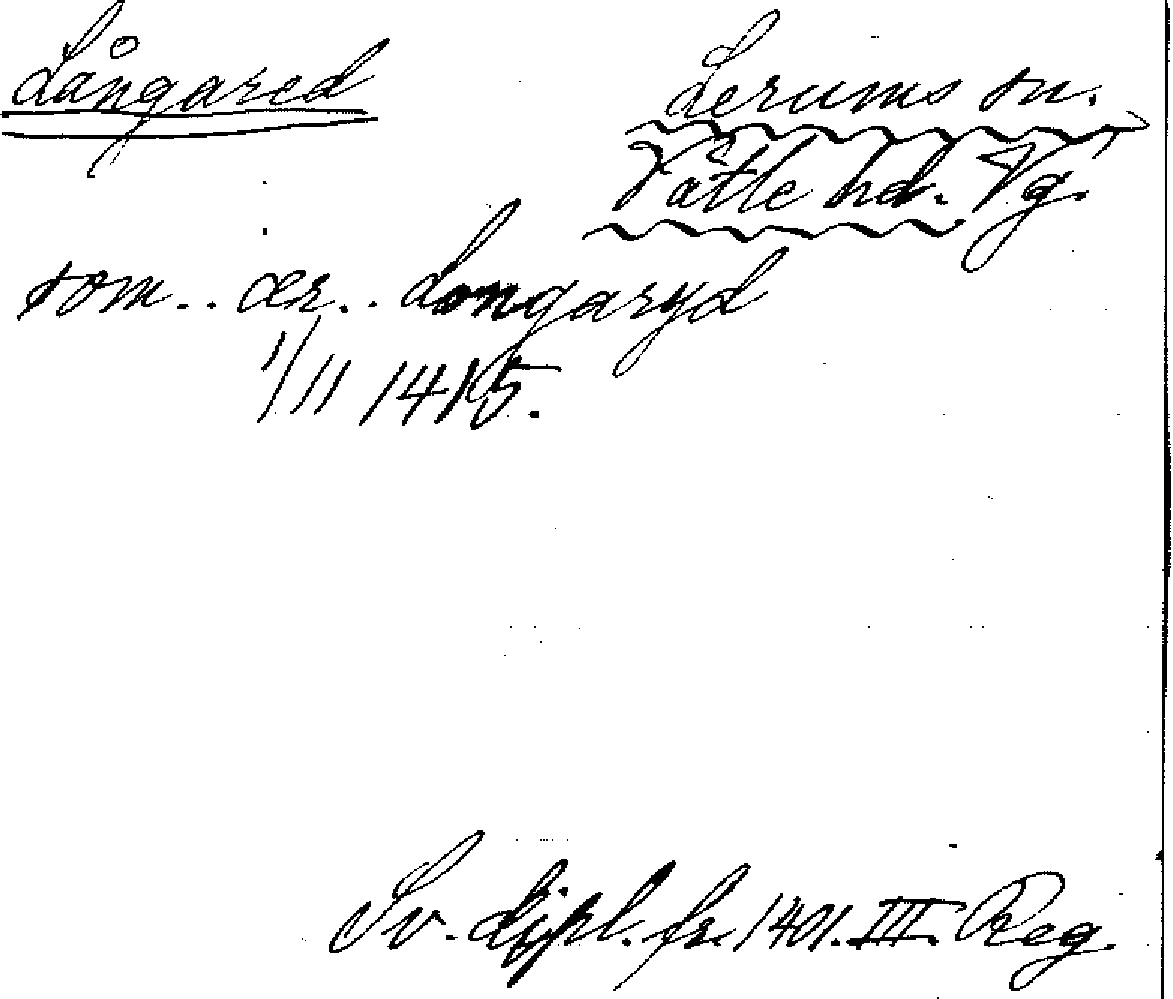 Långared
Lerums sn.
Vätle hd. Vg.
som.. ær.. Longaryd
1/11 1415.
Sv. dipl. fr. 1401. III. Reg.